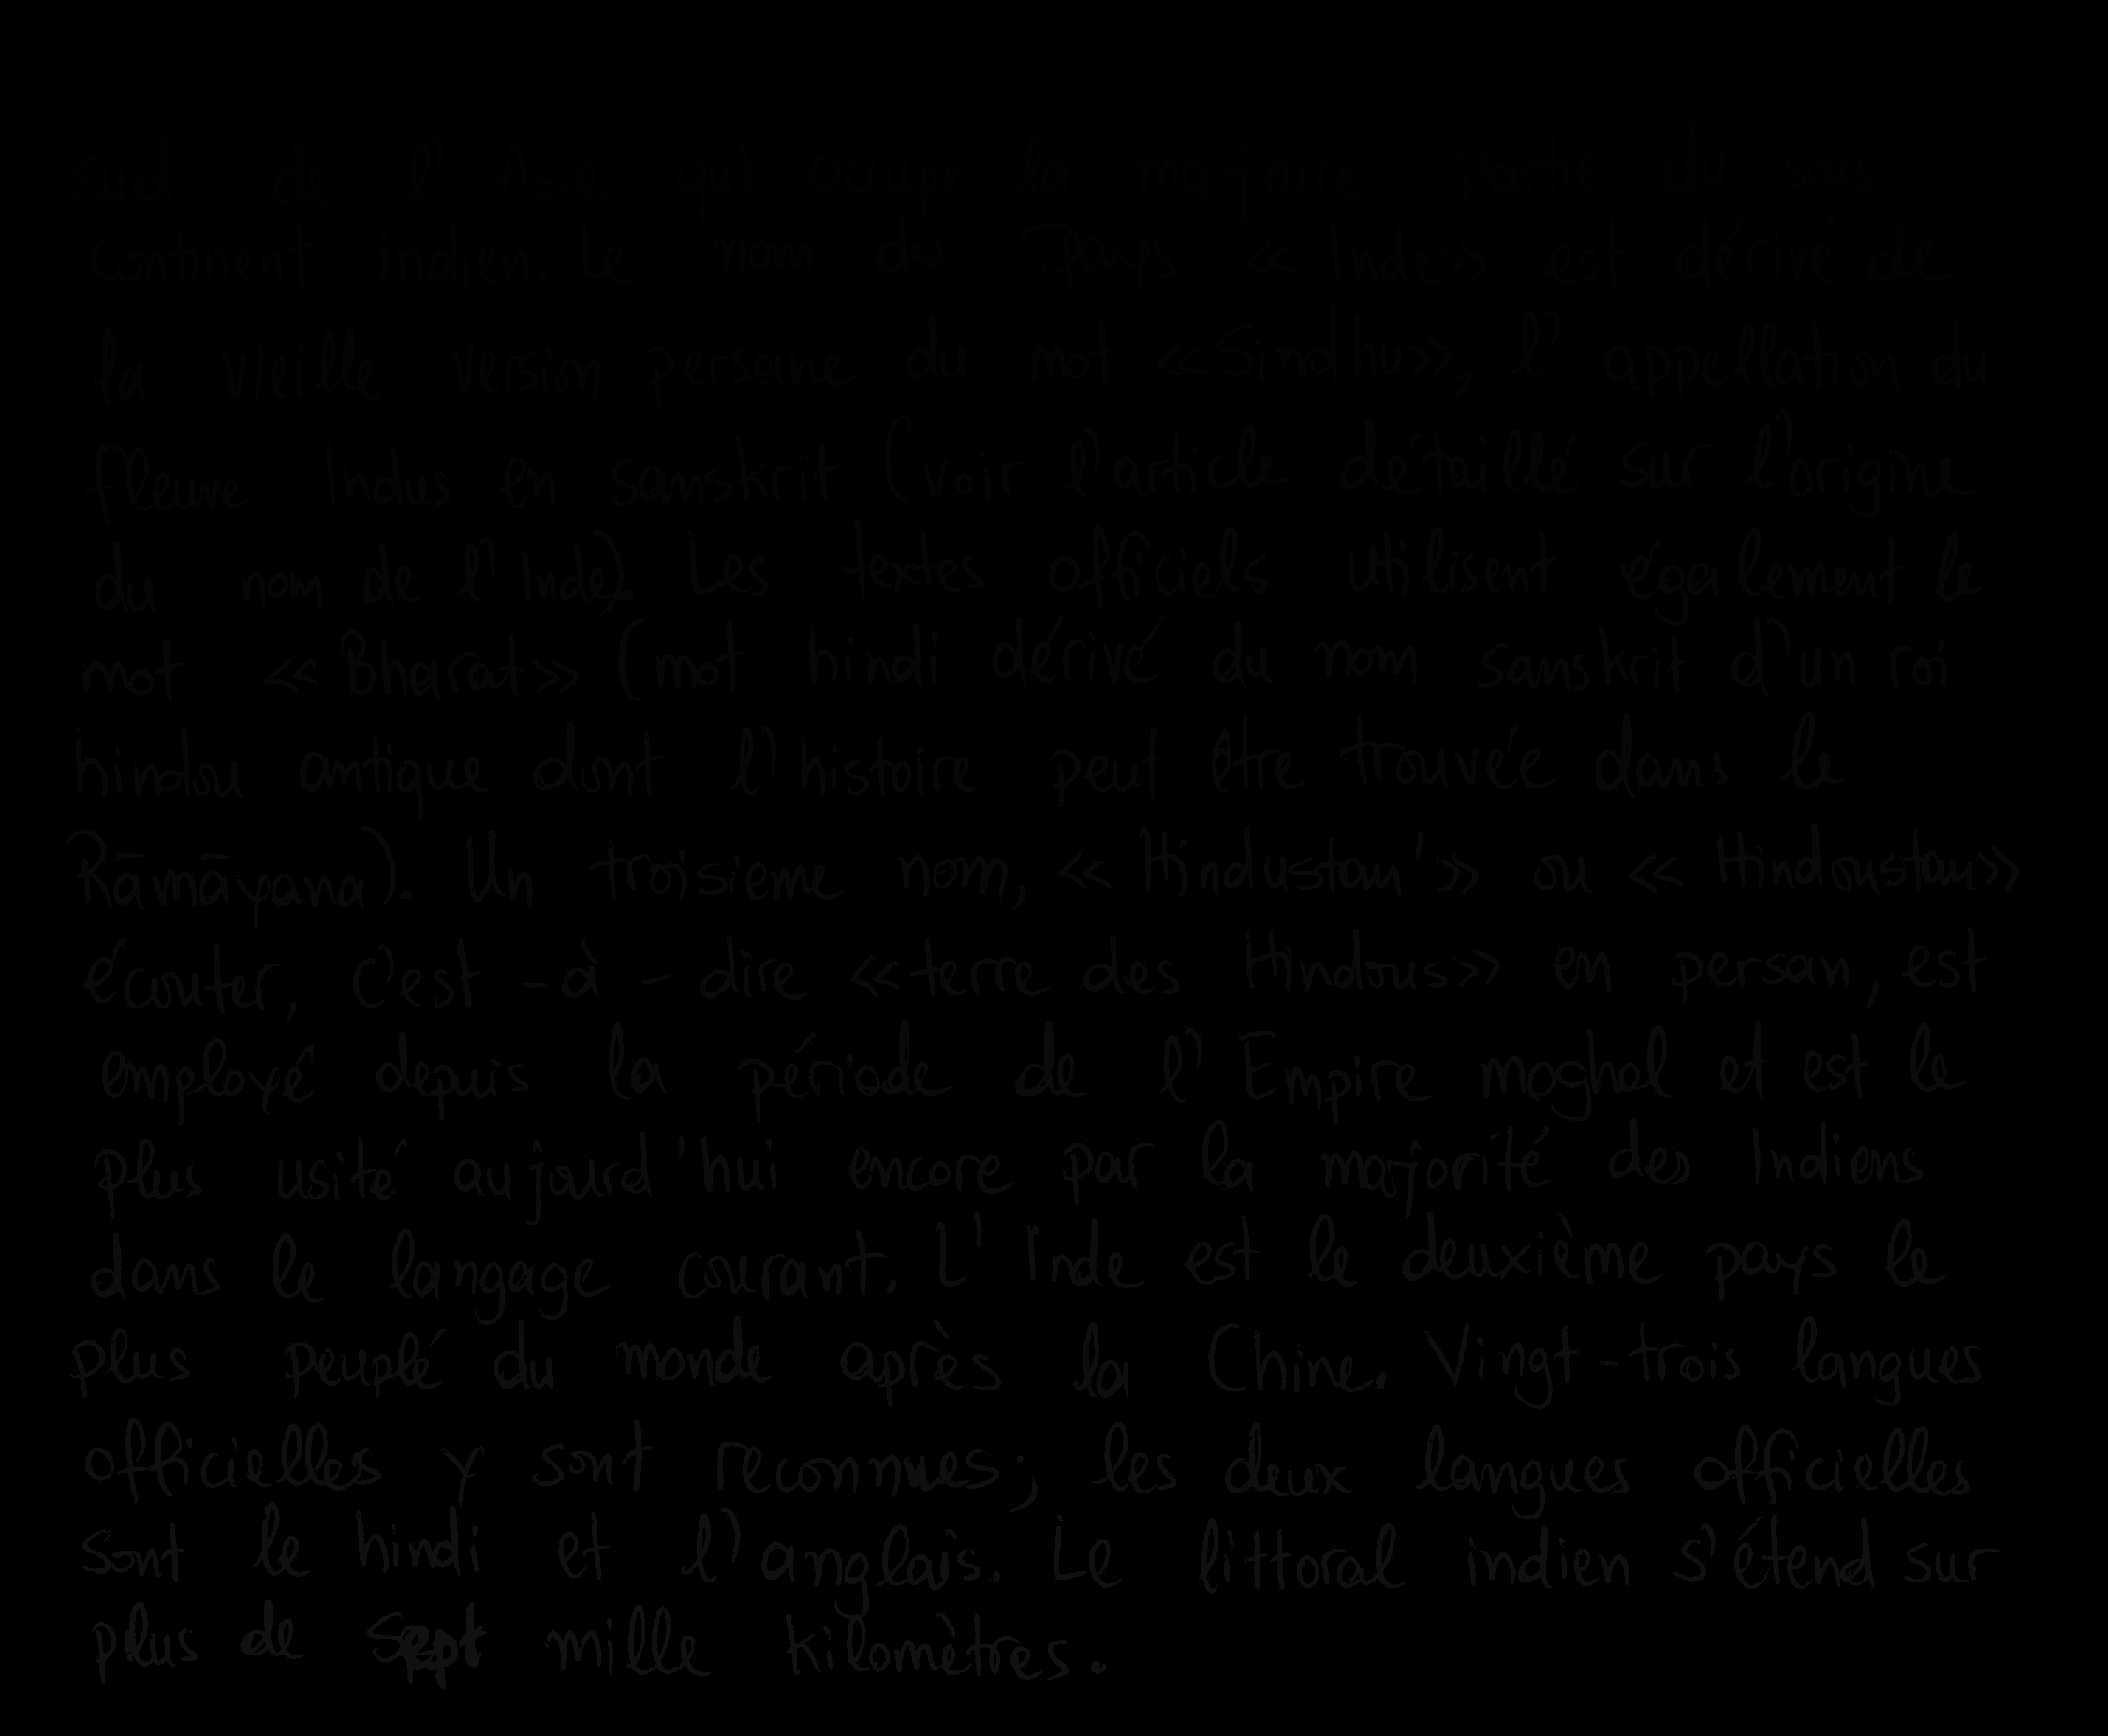 L' Inde, officiellement la République de l' Inde, est un pays du
sud de l' Asie qui occupe la majeure partie du sous-
continent indien. Le nom du pays « Inde» est dérivé de
la vieille version persane du mot «Sindhu», l' appellation du
fleuve Indus en sanskrit (voir l'article détaillé sur l'origine
du nom de l' Inde). Les textes officiels utilisent également le
mot « Bharat» (mot hindi dérivé du nom sanskrit d'un roi
hindou antique dont l'histoire peut être trouvée dans le
Rāmāyana). Un troisieme nom, « Hindustan'» ou « Hindoustan»
écouter, c'est -à - dire «terre des Hindous» en persan, est
employé depuis la période de l' Empire moghol et est le
plus usité aujourd'hui encore par la majorité des Indiens
dans le langage courant. L' Inde est le deuxième pays le
plus peuplé du monde après la Chine. Vingt-trois langues
officielles y sont reconnues; les deux langues officielles
sont le hindi et l'anglais. Le littoral indien s'étend sur
plus de sept mille kilomètres.